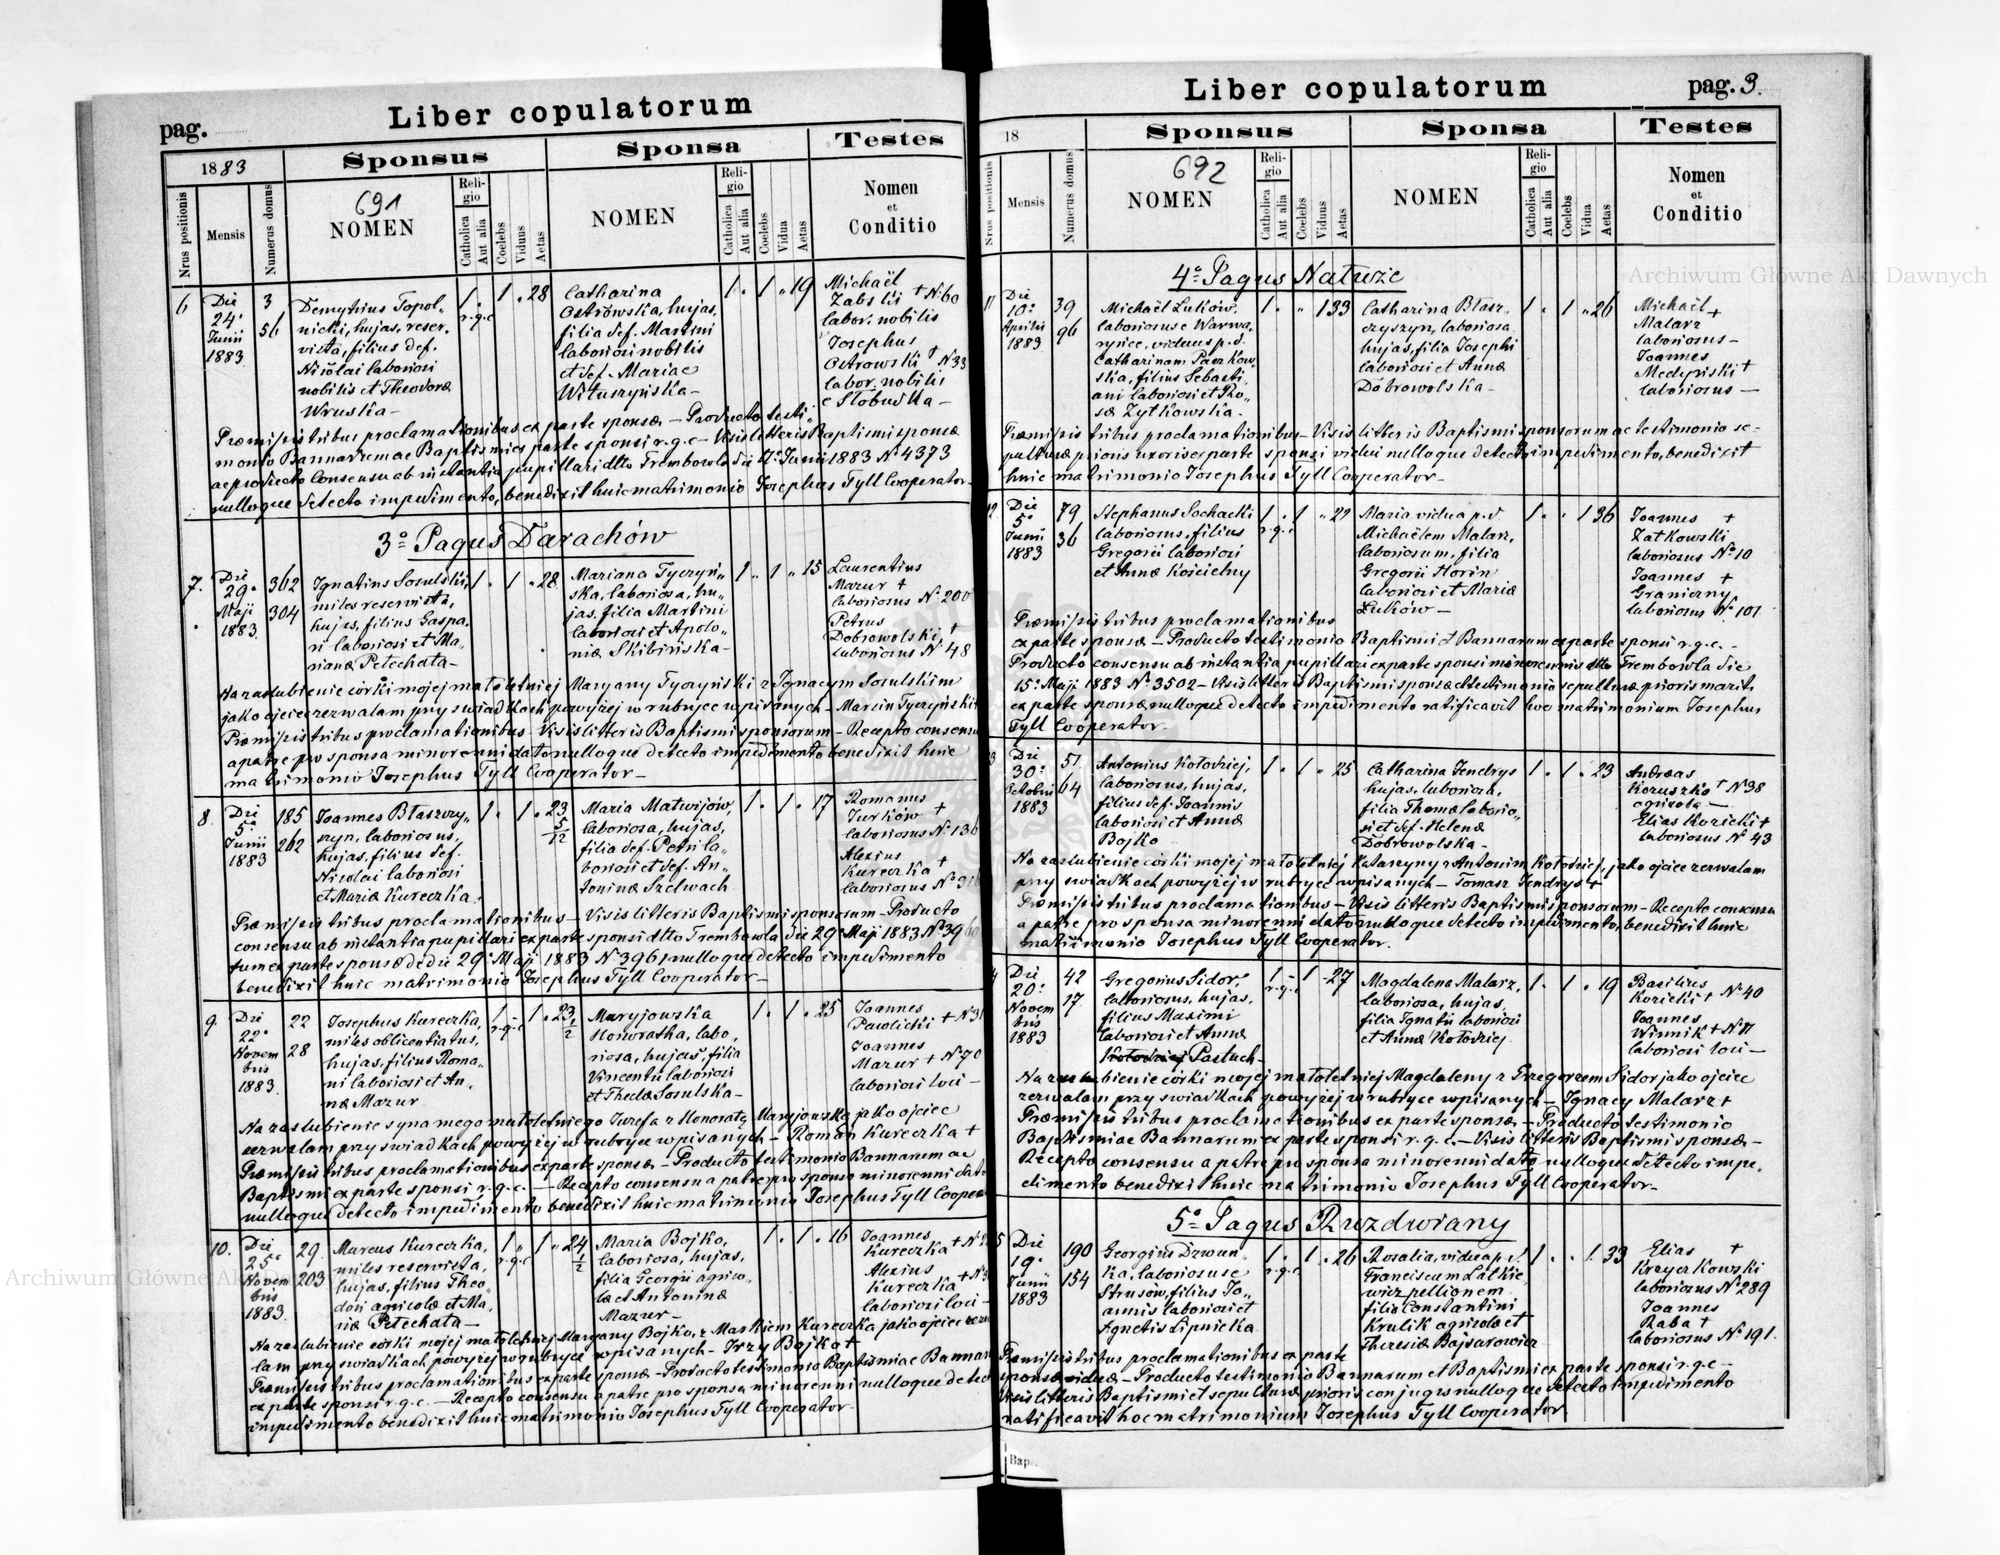 Liber copulatorum
pag.
1883
Sponsus
Sponsa
Testes
Nrus positionis
Mensis
Numerus domus
691
NOMEN
Religio
Catholica
Aut alia
Coelebs
Viduus
Aetas
NOMEN
Religio
Catholica
Aut alia
Coelebs
Vidua
Aetas
Nomen
et
Conditio
6
Die
24a
Junii
1883
3
56
Demytrius Topol-
nicki, hujas, reser-
vista, filius def.
Nicolai laboriosi
nobilis et Theodoræ
Wruska-
1.
r.g.c
1
28
Catharina
Ostrowska, hujas,
filia def. Martini
laboriosi nobilis
et def. Mariae
Wituszyńska-
1.
1
19
Michaël
Zabski + N. 60
labor. nobilis
Josephus
Ostrowski + N 33
labor. nobilis
e Słobudka-
Præmissis tribus proclamationibus ex parte sponsæ - Producto testi-
monio Bannarum ac Baptismi ex parte sponsi r.g.c - Visis litteris Baptismi sponsæ
ac producto Consensu ab instantia pupillari dtto Trembowla die 11a Junii 1883 N. 4373
nulloque detecto impedimento, benedixit huic matrimonio Josephus Tyll Cooperator-
3o Pagus Darachów
7.
Die
29a
Maji
1883.
362
304
Ignatius Sosulski,
miles reservista,
hujas, filius Gaspa-
ri laboriosi et Ma-
rianæ Petechata-
1.
1
28
Mariana Tyczyń-
ska, laboriosa, hu-
jas, filia Martini
laboriosi et Apolo-
niæ Skibińska-
1
1
15
Laurentius
Mazur +
laboriosus N. 200
Petrus
Dobrowolski +
laboriosus N. 48
Na zaslubienie córki mojej małoletniej Maryany Tyczyński z Ignacym Sosulskim
jako ojciec zezwalam przy swiadkach powyżej w rubryce wpisanych - Marcin Tyczyński
Præmissis tribus proclamationibus - Visis litteris Baptismi sponsorum - Recepto consensu
a patre pro sponsa minorenni dato nulloque detecto impedimento benedixit huic
matrimonio Josephus Tyll Cooperator-
8.
Die
5a
Junii
1883
185
262
Joannes Błaszczy-
szyn, laboriosus,
hujas, filius def.
Nicolai laboriosi
et Mariæ Kureczka.
1.
1.
23
5/12
Maria Matwijów,
laboriosa, hujas,
filia def. Petri la-
boriosi et def. An-
toninæ Szelwach
1.
1.
17
Romanus
Jurków +
laboriosus N. 136
Alexius +
Kureczka
laboriosus N. 91
Præmissis tribus proclamationibus - Visis litteris Baptismi sponsorum - Producto
consensu ab instantia pupillari ex parte sponsi dtto Trembowla die 29a Maji 1883 N. 39
tum ex parte sponsæ de die 29a Maji 1883 N 3961 nulloque detecto impedimento
benedixit huic matrimonio Josephus Tyll Cooperator-
9.
Die
22a
Novem
bris
1883.
22
28
Josephus Kureczka,
miles oblicentiatus,
hujas, filius Roma-
ni laboriosi et An-
næ Mazur
1
r.g.c
1.
23
1/2
Maryjowska
Honoratka, labo-
riosa, hujas, filia
Vincentii laboriosi
et Theclæ Sosulska-
1.
1.
25
Joannes
Pawlicki + N 31
Joannes
Mazur + N. 70
laboriosi loci-
Na zaslubienie syna mego małoletniego Jozefa z Honoratą Maryjowską jako ojciec
zezwalam przy swiadkach powyżej w rubryce wpisanych - Roman Kureczka +
Præmissis tribus proclamationibus ex parte sponsæ - Producto testimonio Bannarum ac
Baptismi ex parte sponsi r.g.c. - Recepto consensu a patre pro sponso minorenni dato
nulloque detecto impedimento benedixit huic matrimonio Josephus Tyll Cooper
10.
Die
25a
Novem
bris
1883.
29.
203
Marcus Kureczka,
miles reservista,
hujas, filius Theo-
dori agricolæ et Ma-
riæ Petechata-
1
r.g.c
1
24
1/2
Maria Bojko,
laboriosa, hujas,
filia Georgii agrico-
læ et Antoninæ
Mazur-
1.
1.
16
Joannes
Kureczka + N.
Alexius
Kureczka + N.
laboriosi loci-
Na zaslubienie córki mojej małoletniej Maryany Bojko, z Markiem Kureczka jako ojciec zezwa
lam przy swiadkach powyżej w rubryce wpisanych - Jrzy Bojko +
Præmissis tribus proclamationibus ex parte sponsæ - Producto testimonio Baptismi ac Bannar
ex parte sponsi r.g.c. - Recepto consensu a patre pro sponsa minorenni nulloque detecto
impedimento benedixit huic matrimonio Josephus Tyll Cooperator-
Liber copulatorum
pag. 3.
18
Sponsus
Sponsa
Testes
Nrus positionis
Mensis
Numerus domus
692
NOMEN
Religio
Catholica
Aut alia
Coelebs
Viduus
Aetas
NOMEN
Religio
Catholica
Aut alia
Coelebs
Vidua
Aetas
Nomen
et
Conditio
4o Pagus Nałuże
11
Die
10a
Aprilis
1883
39
96
Michaël Luków,
laboriosus e Warwa-
rynce, viduus p.d.
Catharinam Paczkow-
ska, filius Sebasti-
ani laboriosi et Ro-
sæ Zytkowska.
1.
1
33
Catharina Błasz-
czyszyn, laboriosa
hujas, filia Josephi
laboriosi et Annæ
Dobrowolska-
1.
1
26
Michaël +
Malarz
laboriosus-
Joannes
Medyński +
laboriosus-
Præmissis tribus proclamationibus - Visis litteris Baptismi sponsorum ac testimonio se-
pulturæ prioris uxoris ex parte sponsi vidui nulloque detecto impedimento, benedixit
huic matrimonio Josephus Tyll Cooperator-
12
Die
5a
Junii
1883
79
36
Stephanus Sochacki
laboriosus, filius
Gregorii laboriosi
et Annæ Kościelny
1.
r.g.c
1
22
Maria vidua p.d
Michaëlem Malarz,
laboriosum, filia
Gregorii Horin
laboriosi et Mariæ
Luków-
1.
1
36
Joannes +
Zatkowski
laboriosus N. 10
Joannes +
Graniczny
laboriosus N. 101
Præmissis tribus proclamationibus
ex parte sponsæ - Producto testimonio Baptismi et Bannarum ex parte sponsi r.g.c.-
Producto consensu ab instantia pupillari ex parte sponsi minorennis dtto Trembowla die
15a Maji 1883 N. 3502 - Visis litteris Baptismi sponsæ et testimonio sepulturæ prioris mariti
ex parte sponsæ nulloque detecto impedimento ratificavit hoc matrimonium Josephus
Tyll Cooperator.
3
Die
30a
Octobris
1883
51.
64
Antonius Kołodziej,
laboriosus, hujas,
filius def. Joannis
laboriosi et Annæ
Bojko
1.
1
25
Catharina Jendrys
hujas, laboriosa,
filia Thomæ laborio-
si et def. Helenæ
Dobrowolska-
1.
1.
23
Andreas
Koruszko + N. 38
agricola-
Elias Kozicki +
laboriosus N. 43
Na zaslubienie córki mojej małoletniej Katarzyny z Antonim Kołodziej, jako ojciec zezwalam
przy swiadkach powyżej w rubryce wpisanych - Tomasz Jendrys +
Præmissis tribus proclamationibus - Visis litteris Baptismi sponsorum - Recepto consensu
a patre pro sponsa minorenni dato nulloque detecto impedimento, benedixit huic
matrimonio Josephus Tyll Cooperator.
4
Die
20a
Novem
bris
1883
42
17.
Gregorius Sidor,
laboriosus, hujas,
filius Maximi
laboriosi et Annæ
Kołodziej Pastuch-
1-
r.g.c
1
27
Magdalena Malarz,
laboriosa, hujas,
filia Ignatii laboriosi
et Annæ Kołodziej
1.
1.
19
Basilius
Kozicki + N. 40
Joannes
Winnik + N 11
laboriosi loci-
Na zaslubienie córki mojej małoletniej Magdaleny z Grzegorzem Sidor jako ojciec
zezwalam przy swiadkach powyżej w rubryce wpisanych - Ignacy Malarz +
Præmissis tribus proclamationibus ex parte sponsæ - Producto testimonio
Baptismi ac Bannarum ex parte sponsi r.g.c. - Visis litteris Baptismi sponsæ-
Recepto consensu a patre pro sponsa minorenni dato nulloque detecto impe-
dimento benedixit huic matrimonio Josephus Tyll Cooperator-
5o Pagus Ruzdwiany
5
Die
19a
Junii
1883
190
154
Georgius Dzwon-
ka, laboriosus e
Strusów, filius Jo-
annis laboriosi et
Agnetis Lipnicka
1.
r.g.c
1.
26
Rosalia, vidua p.d.
Franciscum Latkie-
wicz pellionem
filia Constantini
Krulik agricolæ et
Theresiæ Bajsarowicz
1.
1
33
Elias +
Kreyczkowski
laboriosus N. 289
Joannes
Raba +
laboriosus N. 191.
Præmissis tribus proclamationibus ex parte
sponsæ viduæ - Producto testimonio Bannarum et Baptismi ex parte sponsi r.g.c-
Visis litteris Baptismi et sepulturæ prioris conjugis nulloque detecto impedimento
ratificavit hoc matrimonium Josephus Tyll Cooperator.
Bap
Archiwum Główne Akt Dawnych
Archiwum Główne Akt Dawnych